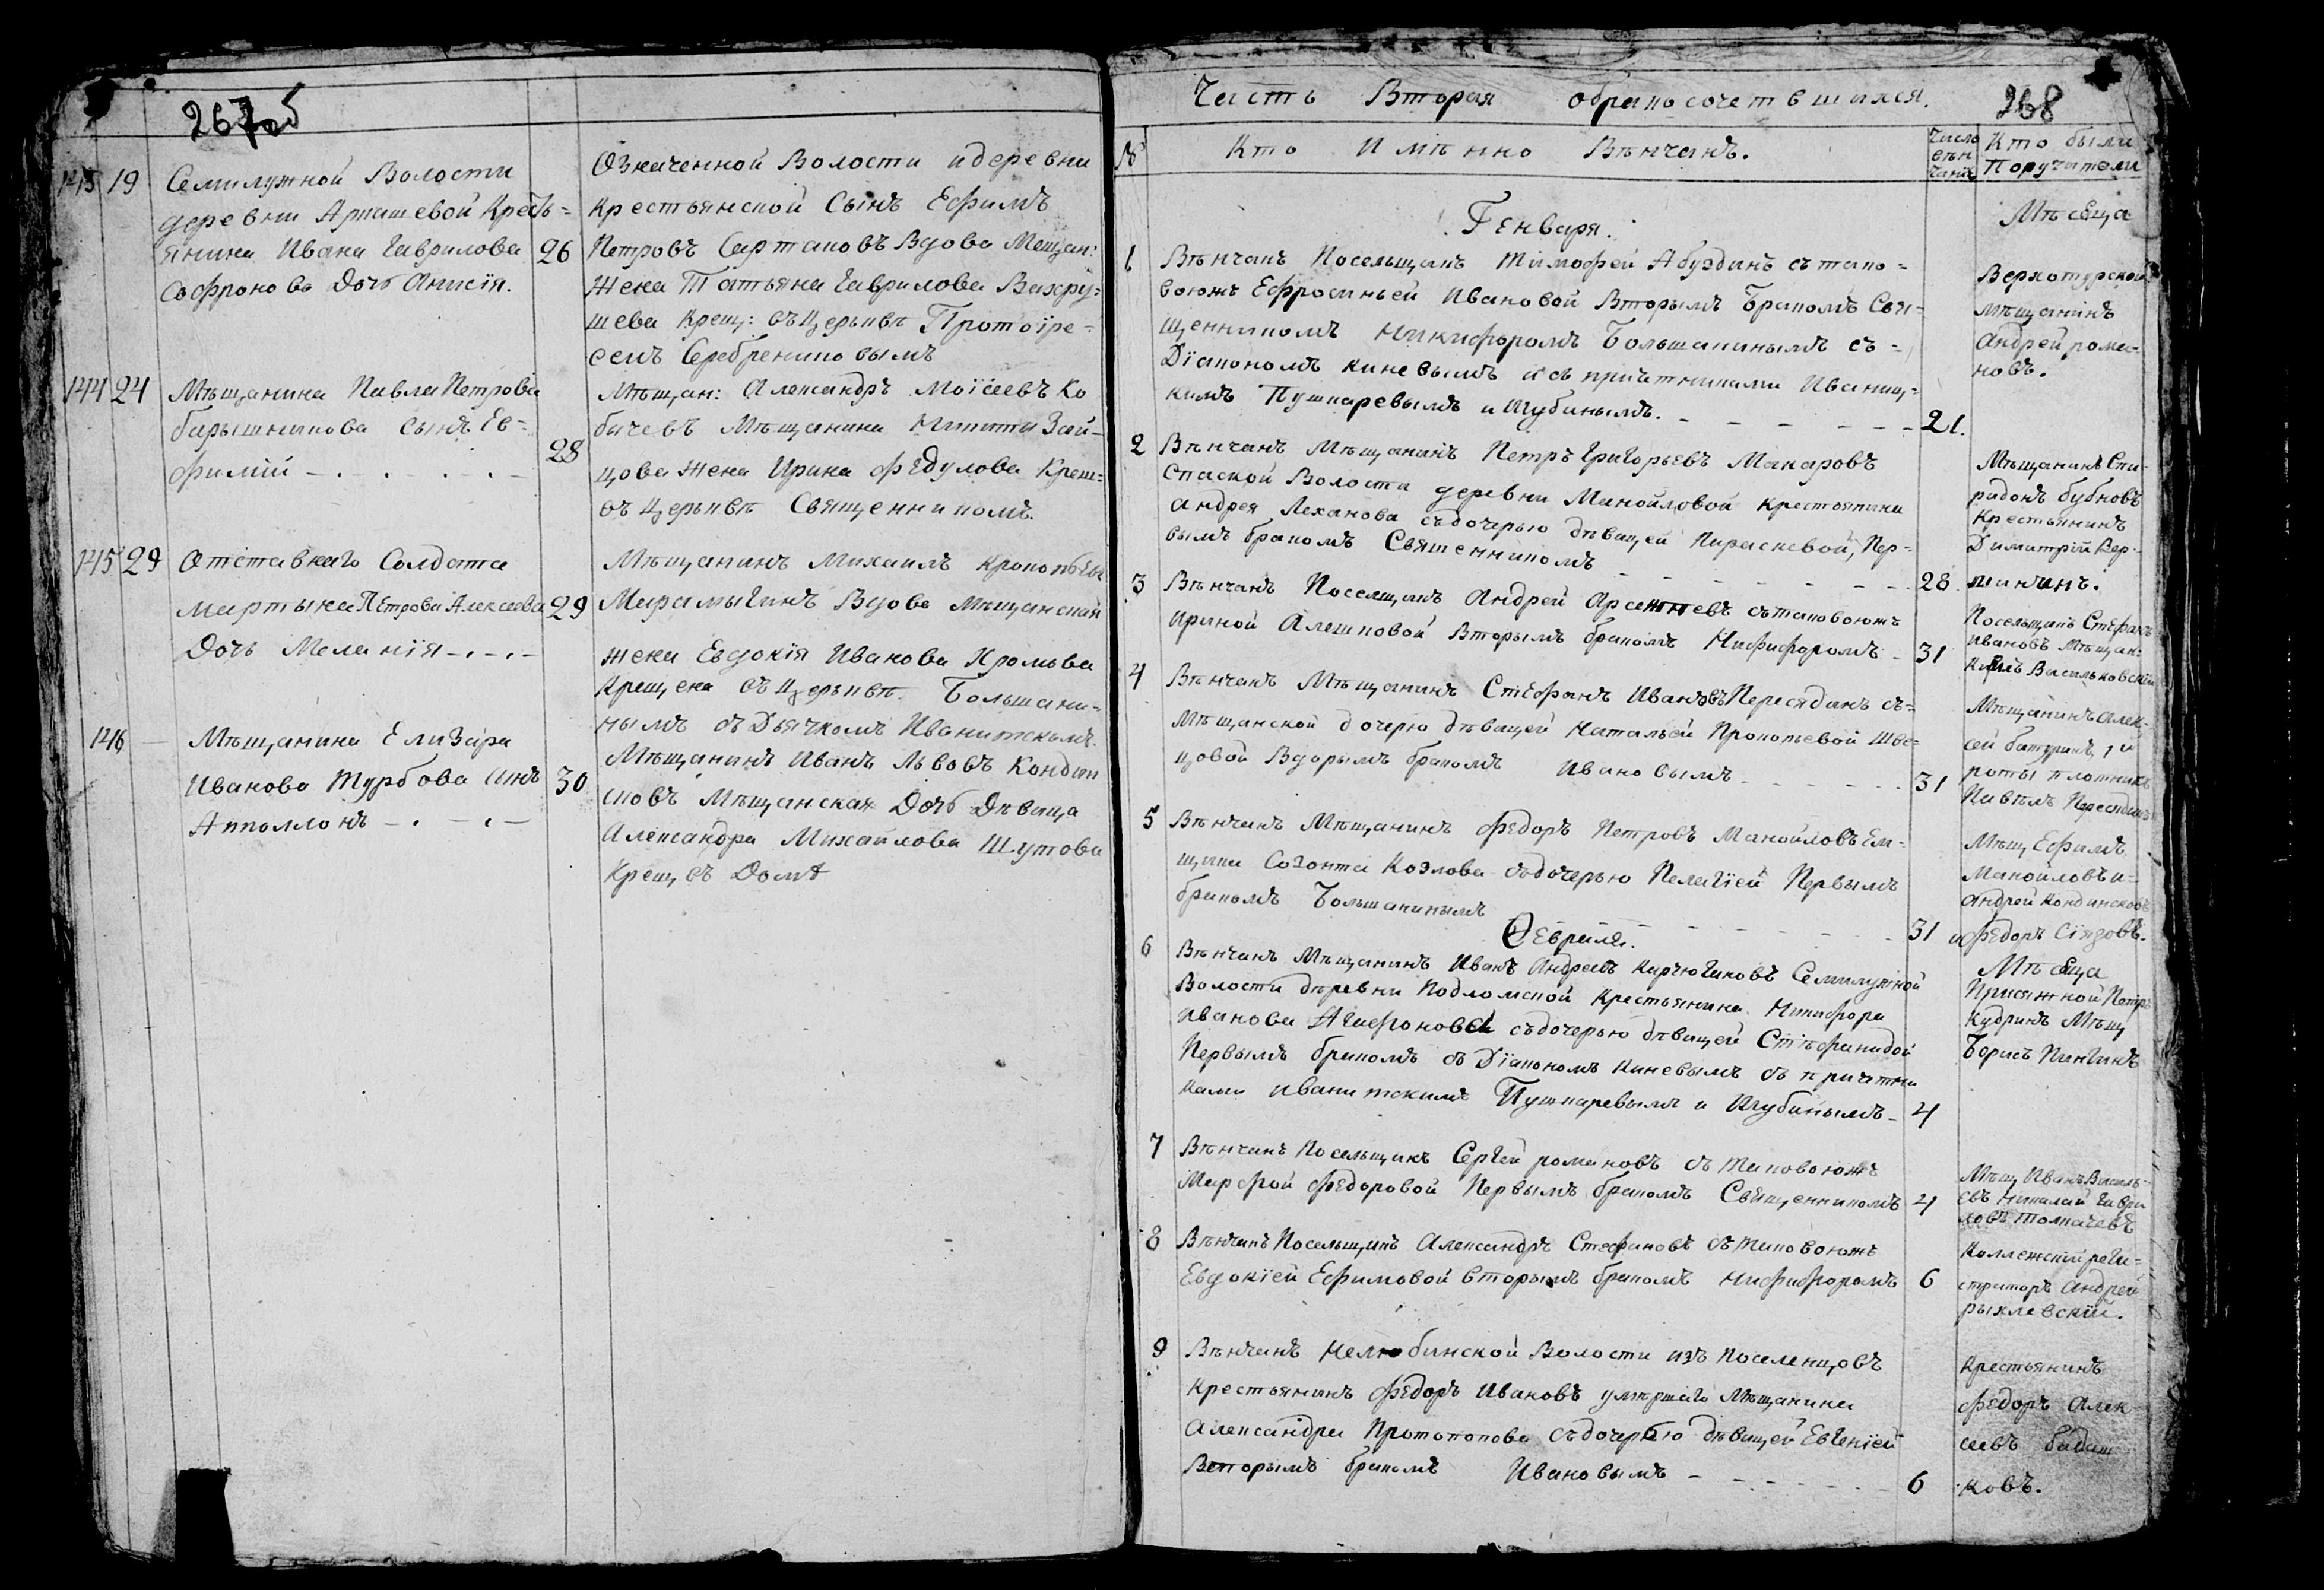 267об
143 19 Семилужной Волости
деревни Аркашевой Кресть=
янина Ивана Гаврилова 26
Софронова Дочь Анисія.
Означенной Волости и деревни
Крестьянской Сынъ Ефимъ
Петровъ Сартаковъ Вдова Мещан:
Жена Татьяна Гаврилова Вахру=
шева Крещ: въ Церьквѣ Протоіре=
еемъ Серебрениковымъ
144 24 Мѣщанина Павла Петрова
барышникова сынъ Ев=
фимій 28
Мѣщан: Александръ Моісеевъ Ко
бачевъ Мѣщанина Никиты Зай=
цова жена Ирина Федулова Крещ=
въ Церьквѣ Священникомъ.
145 29 Отставнаго Солдата
мартына Петрова Алексеева 29
Дочь Меланія
Мѣщанинъ Михаилъ Прокопьевъ
Карамыгинъ Вдова Мѣщанская
жена Евдокія Иванова Хромова
Крещена въ Церьквѣ Большани=
нымъ съ Дьячкомъ Иванитскимъ.
146 Мѣщанина Елизара
Иванова Турбова сынъ 30
Апполлонъ
Мѣщанинъ Иванъ Львовъ Кондин
сковъ Мѣщанская Дочь Дѣвица
Александра Михайлова Шутова
Крещ въ Домѣ
Часть Вторая обракосочетавшихся. 268
№ Кто Имѣнно Вѣнчанъ.
Число
вѣн
чанiя
Кто были
Поручатели
Генваря.
Мѣсяца
1 Вѣнчанъ Посельщикъ Тимофей Абуздинъ стако=
воюжъ Ефросиньей Ивановой Вторымъ Бракомъ Свя=
щенникомъ Никифоромъ Большанинымъ съ=
Діакономъ Киневымъ и съ причетниками Иваниц=
кимъ Пушкаревымъ и Шубинымъ. 21.
Верхотурской
мѣщанинъ
Андрей рома=
новъ.
2 Вѣнчанъ Мѣщанинъ Петръ Григорьевъ Макаровъ
Спаской Волости деревни Манойловой крестьянина
Андрея Леханова съ дочерью дѣвицей Параскевой, Пер=
вымъ бракомъ Священникомъ 28
Мѣщанинъ Спи
ридонъ бубновъ
Крестьянинъ
Димитрій Вер=
шининъ.
3 Вѣнчанъ Поселщикъ Андрей Арсентьевъ стаковоюжъ
Ириной Алешковой Вторымъ бракомъ Никифоромъ 31
Посельщикъ Стефанъ
Ивановъ Мѣщан:
Васильковскій
4 Вѣнчанъ Мѣщанинъ Стефанъ Ивановъ Пересядинъ съ=
Мѣщанской дочерю дѣвицей Натальей Прокопьевой Шве=
цовой Вдорымъ бракомъ Ивановымъ 31
Мѣщанинъ Алек=
сей батуринъ, 1й
роты плотникъ
Павелъ Пересядинъ
5 Вѣнчанъ Мѣщанинъ Федоръ Петровъ Манойловъ Ем=
щика Созонта Козлова съ дочерью Пелагіей Первымъ
бракомъ Большанинымъ 31
Мѣщ Ефимъ
Манойловъ и=
Андрей Кондинсковъ
и Федоръ Сіядовъ.
Февраля.
Мѣсяца
6 Вѣнчанъ Мѣщанинъ Иванъ Андреевъ Карчюгановъ Семилужной
Волости деревни Подломской Крестьянина Никифора
Иванова Агафонова съ дочерью дѣвицей Стефанидой
Первымъ бракомъ съ Діакономъ Киневымъ съ причетни
ками Иванитскимъ Пушкаревымъ и Шубинымъ 4
Присяжной Петръ
Кудринъ Мѣщ
Борисъ Пичгинъ
7 Вѣнчанъ Посельщикъ Сергей романовъ стаковоюжъ
Марфой Федоровой Первымъ бракомъ Священникомъ 4
Мѣщ Иванъ Василь=
евъ Николай Гаври
ловъ Толкачевъ
8 Вѣнчанъ Посельщикъ Александръ Стефановъ стаковоюжъ
Евдокіей Ефимовой вторымъ бракомъ Никифоромъ 6
Коллежскій реги=
страторъ Андрей
рыхлевскій.
9 Вѣнчанъ Нелюбинской Волости изъ поселенцовъ
Крестьянинъ Федоръ Ивановъ умершаго Мѣщанина
Александра Протопопова съ дочерью дѣвицей Евгеніей
Вторымъ бракомъ Ивановымъ 6
Крестьянинъ
Федоръ Алек
сеевъ бадаш
ковъ.